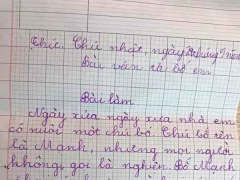 Thức. Chủ nhật, ngày tháng năm
Bài văn tả bố em.
Bài làm
Ngày xửa ngày xưa nhà em
có nuôi một chú bố. Chú bố tên
là Mạnh, nhưng mọi người
không gọi là nghiện. Bố Mạnh